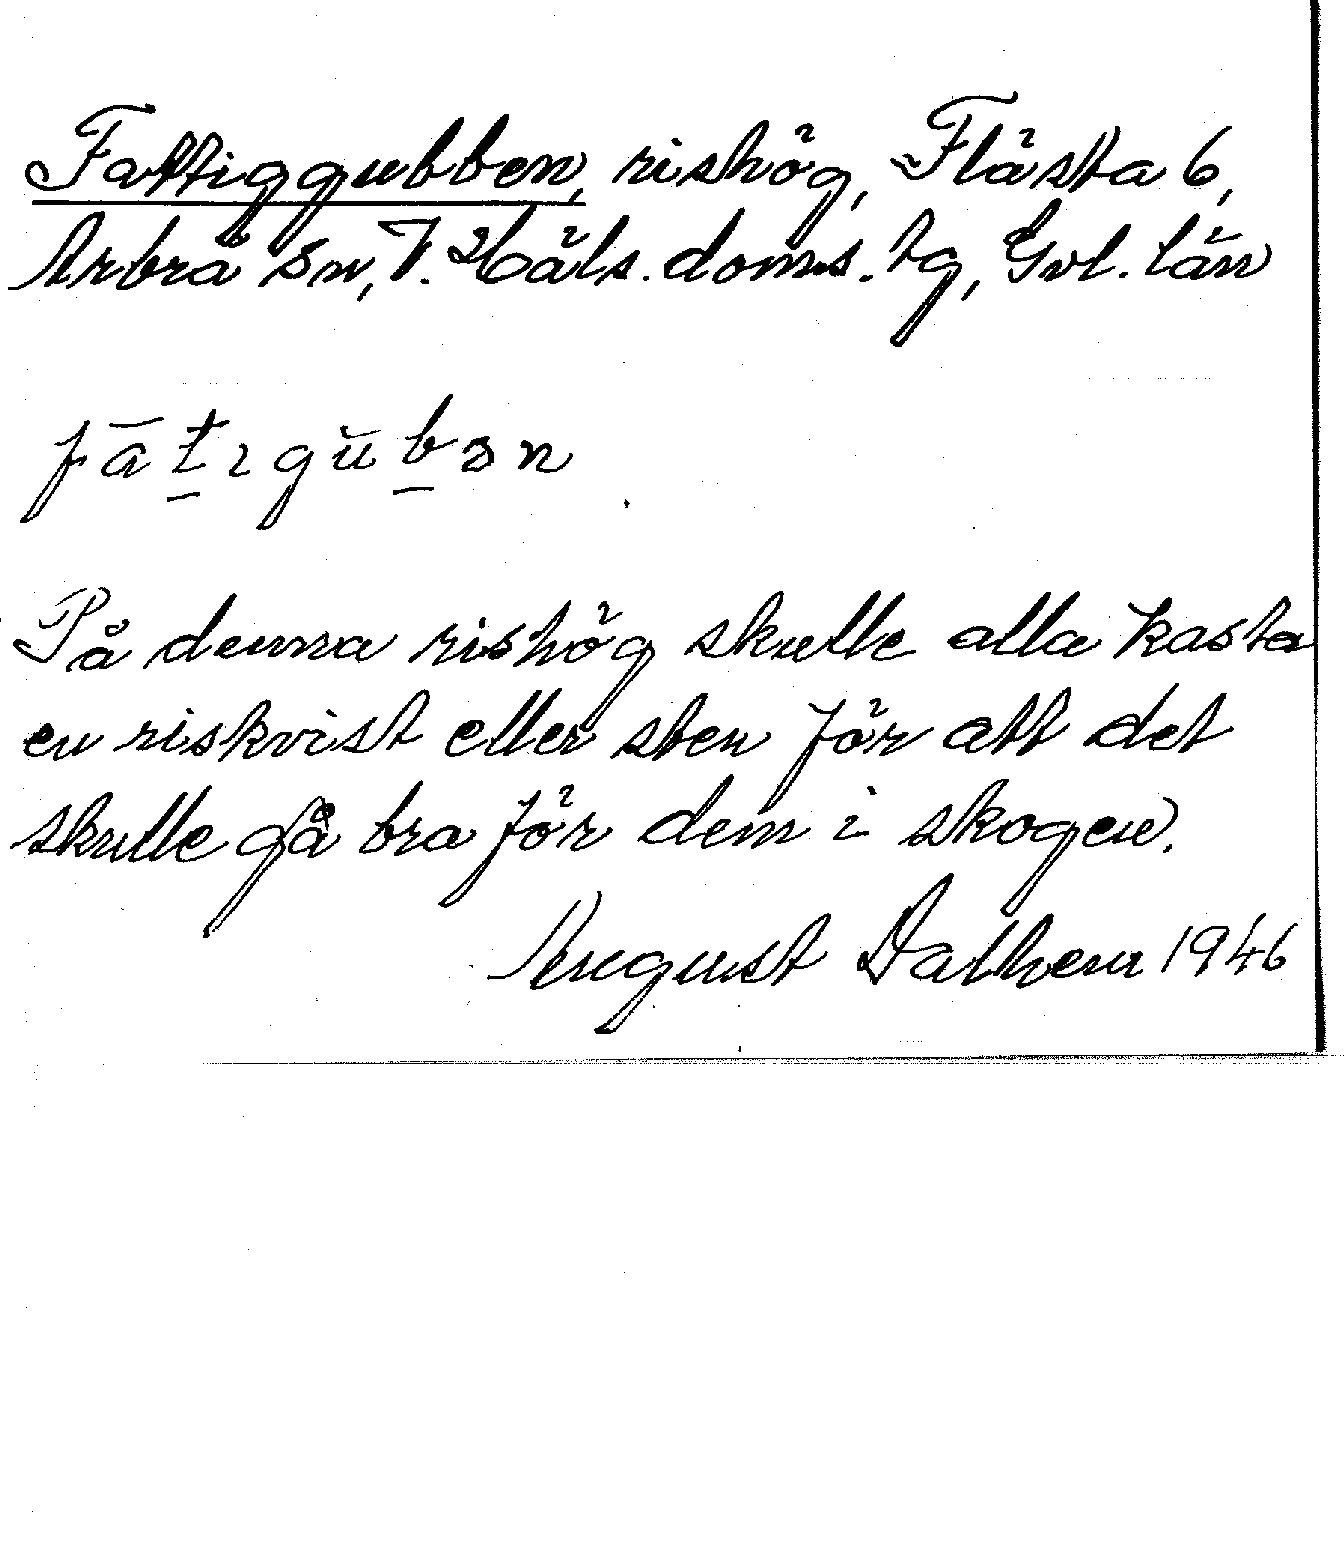 Fattiggubben, rishög, Flästa 6,
Arbrå sn, V. Häls. doms. tg, Gvl. län
fāt̠ıgŭb̠ən
På denna rishög skulle alla kasta
en riskvist eller sten för att det
skulle gå bra för dem i skogen.
August Dalhem 1946